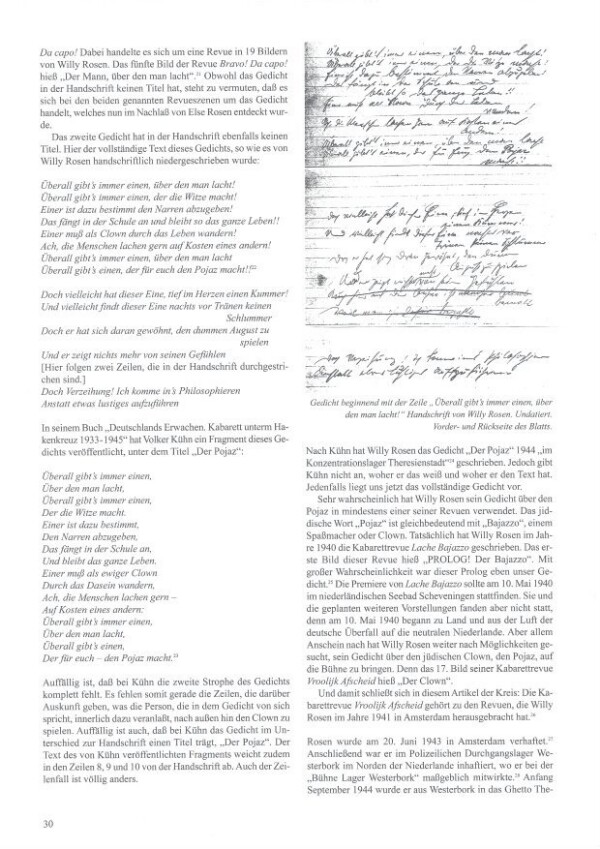 Da capo! Dabei handelte es sich um eine Revue in 19 Bildern
von Willy Rosen. Das fünfte Bild der Revue Bravo! Da capo!
hieß „Der Mann, über den man lacht“.²¹ Obwohl das Gedicht
in der Handschrift keinen Titel hat, steht zu vermuten, daß es
sich bei den beiden genannten Revueszenen um das Gedicht
handelt, welches nun im Nachlaß von Else Rosen entdeckt wur-
de.
Das zweite Gedicht hat in der Handschrift ebenfalls keinen
Titel. Hier der vollständige Text dieses Gedichts, so wie es von
Willy Rosen handschriftlich niedergeschrieben wurde:
Überall gibt's immer einen, über den man lacht!
Überall gibt's immer einen, der die Witze macht!
Einer ist dazu bestimmt den Narren abzugeben!
Das fängt in der Schule an und bleibt so das ganze Leben!!
Einer muß als Clown durch das Leben wandern!
Ach, die Menschen lachen gern auf Kosten eines andern!
Überall gibt's immer einen, über den man lacht
Überall gibt's einen, der für euch den Pojaz macht!!²²
Doch vielleicht hat dieser Eine, tief im Herzen einen Kummer!
Und vielleicht findt dieser Eine nachts vor Tränen keinen
Schlummer
Doch er hat sich daran gewöhnt, den dummen August zu
spielen
Und er zeigt nichts mehr von seinen Gefühlen
[Hier folgen zwei Zeilen, die in der Handschrift durchgestri-
chen sind.]
Doch Verzeihung! Ich komme in's Philosophieren
Anstatt etwas lustiges aufzuführen
In seinem Buch „Deutschlands Erwachen. Kabarett unterm Ha-
kenkreuz 1933-1945“ hat Volker Kühn ein Fragment dieses Ge-
dichts veröffentlicht, unter dem Titel „Der Pojaz“:
Überall gibt's immer einen,
Über den man lacht,
Überall gibt's immer einen,
Der die Witze macht.
Einer ist dazu bestimmt,
Den Narren abzugeben,
Das fängt in der Schule an,
Und bleibt das ganze Leben.
Einer muß als ewiger Clown
Durch das Dasein wandern,
Ach, die Menschen lachen gern –
Auf Kosten eines andern:
Überall gibt's immer einen,
Über den man lacht,
Überall gibt's einen,
Der für euch – den Pojaz macht.²³
Auffällig ist, daß bei Kühn die zweite Strophe des Gedichts
komplett fehlt. Es fehlen somit gerade die Zeilen, die darüber
Auskunft geben, was die Person, die in dem Gedicht von sich
spricht, innerlich dazu veranlaßt, nach außen hin den Clown zu
spielen. Auffällig ist auch, daß bei Kühn das Gedicht im Un-
terschied zur Handschrift einen Titel trägt, „Der Pojaz“. Der
Text des von Kühn veröffentlichten Fragments weicht zudem
in den Zeilen 8, 9 und 10 von der Handschrift ab. Auch der Zei-
lenfall ist völlig anders.
Gedicht beginnend mit der Zeile „Überall gibt's immer einen, über
den man lacht!“ Handschrift von Willy Rosen. Undatiert.
Vorder- und Rückseite des Blatts.
Nach Kühn hat Willy Rosen das Gedicht „Der Pojaz“ 1944 „im
Konzentrationslager Theresienstadt“²⁴ geschrieben. Jedoch gibt
Kühn nicht an, woher er das weiß und woher er den Text hat.
Jedenfalls liegt uns jetzt das vollständige Gedicht vor.
Sehr wahrscheinlich hat Willy Rosen sein Gedicht über den
Pojaz in mindestens einer seiner Revuen verwendet. Das jid-
dische Wort „Pojaz“ ist gleichbedeutend mit „Bajazzo“, einem
Spaßmacher oder Clown. Tatsächlich hat Willy Rosen im Jah-
re 1940 die Kabarettrevue Lache Bajazzo geschrieben. Das er-
ste Bild dieser Revue hieß „PROLOG! Der Bajazzo“. Mit
großer Wahrscheinlichkeit war dieser Prolog eben unser Ge-
dicht.²⁵ Die Premiere von Lache Bajazzo sollte am 10. Mai 1940
im niederländischen Seebad Scheveningen stattfinden. Sie und
die geplanten weiteren Vorstellungen fanden aber nicht statt,
denn am 10. Mai 1940 begann zu Land und aus der Luft der
deutsche Überfall auf die neutralen Niederlande. Aber allem
Anschein nach hat Willy Rosen weiter nach Möglichkeiten ge-
sucht, sein Gedicht über den jüdischen Clown, den Pojaz, auf
die Bühne zu bringen. Denn das 17. Bild seiner Kabarettrevue
Vroolijk Afscheid hieß „Der Clown“.
Und damit schließt sich in diesem Artikel der Kreis: Die Ka-
barettrevue Vroolijk Afscheid gehört zu den Revuen, die Willy
Rosen im Jahre 1941 in Amsterdam herausgebracht hat.²⁶
Rosen wurde am 20. Juni 1943 in Amsterdam verhaftet.²⁷
Anschließend war er im Polizeilichen Durchgangslager We-
sterbork im Norden der Niederlande inhaftiert, wo er bei der
„Bühne Lager Westerbork“ maßgeblich mitwirkte.²⁸ Anfang
September 1944 wurde er aus Westerbork in das Ghetto The-
30